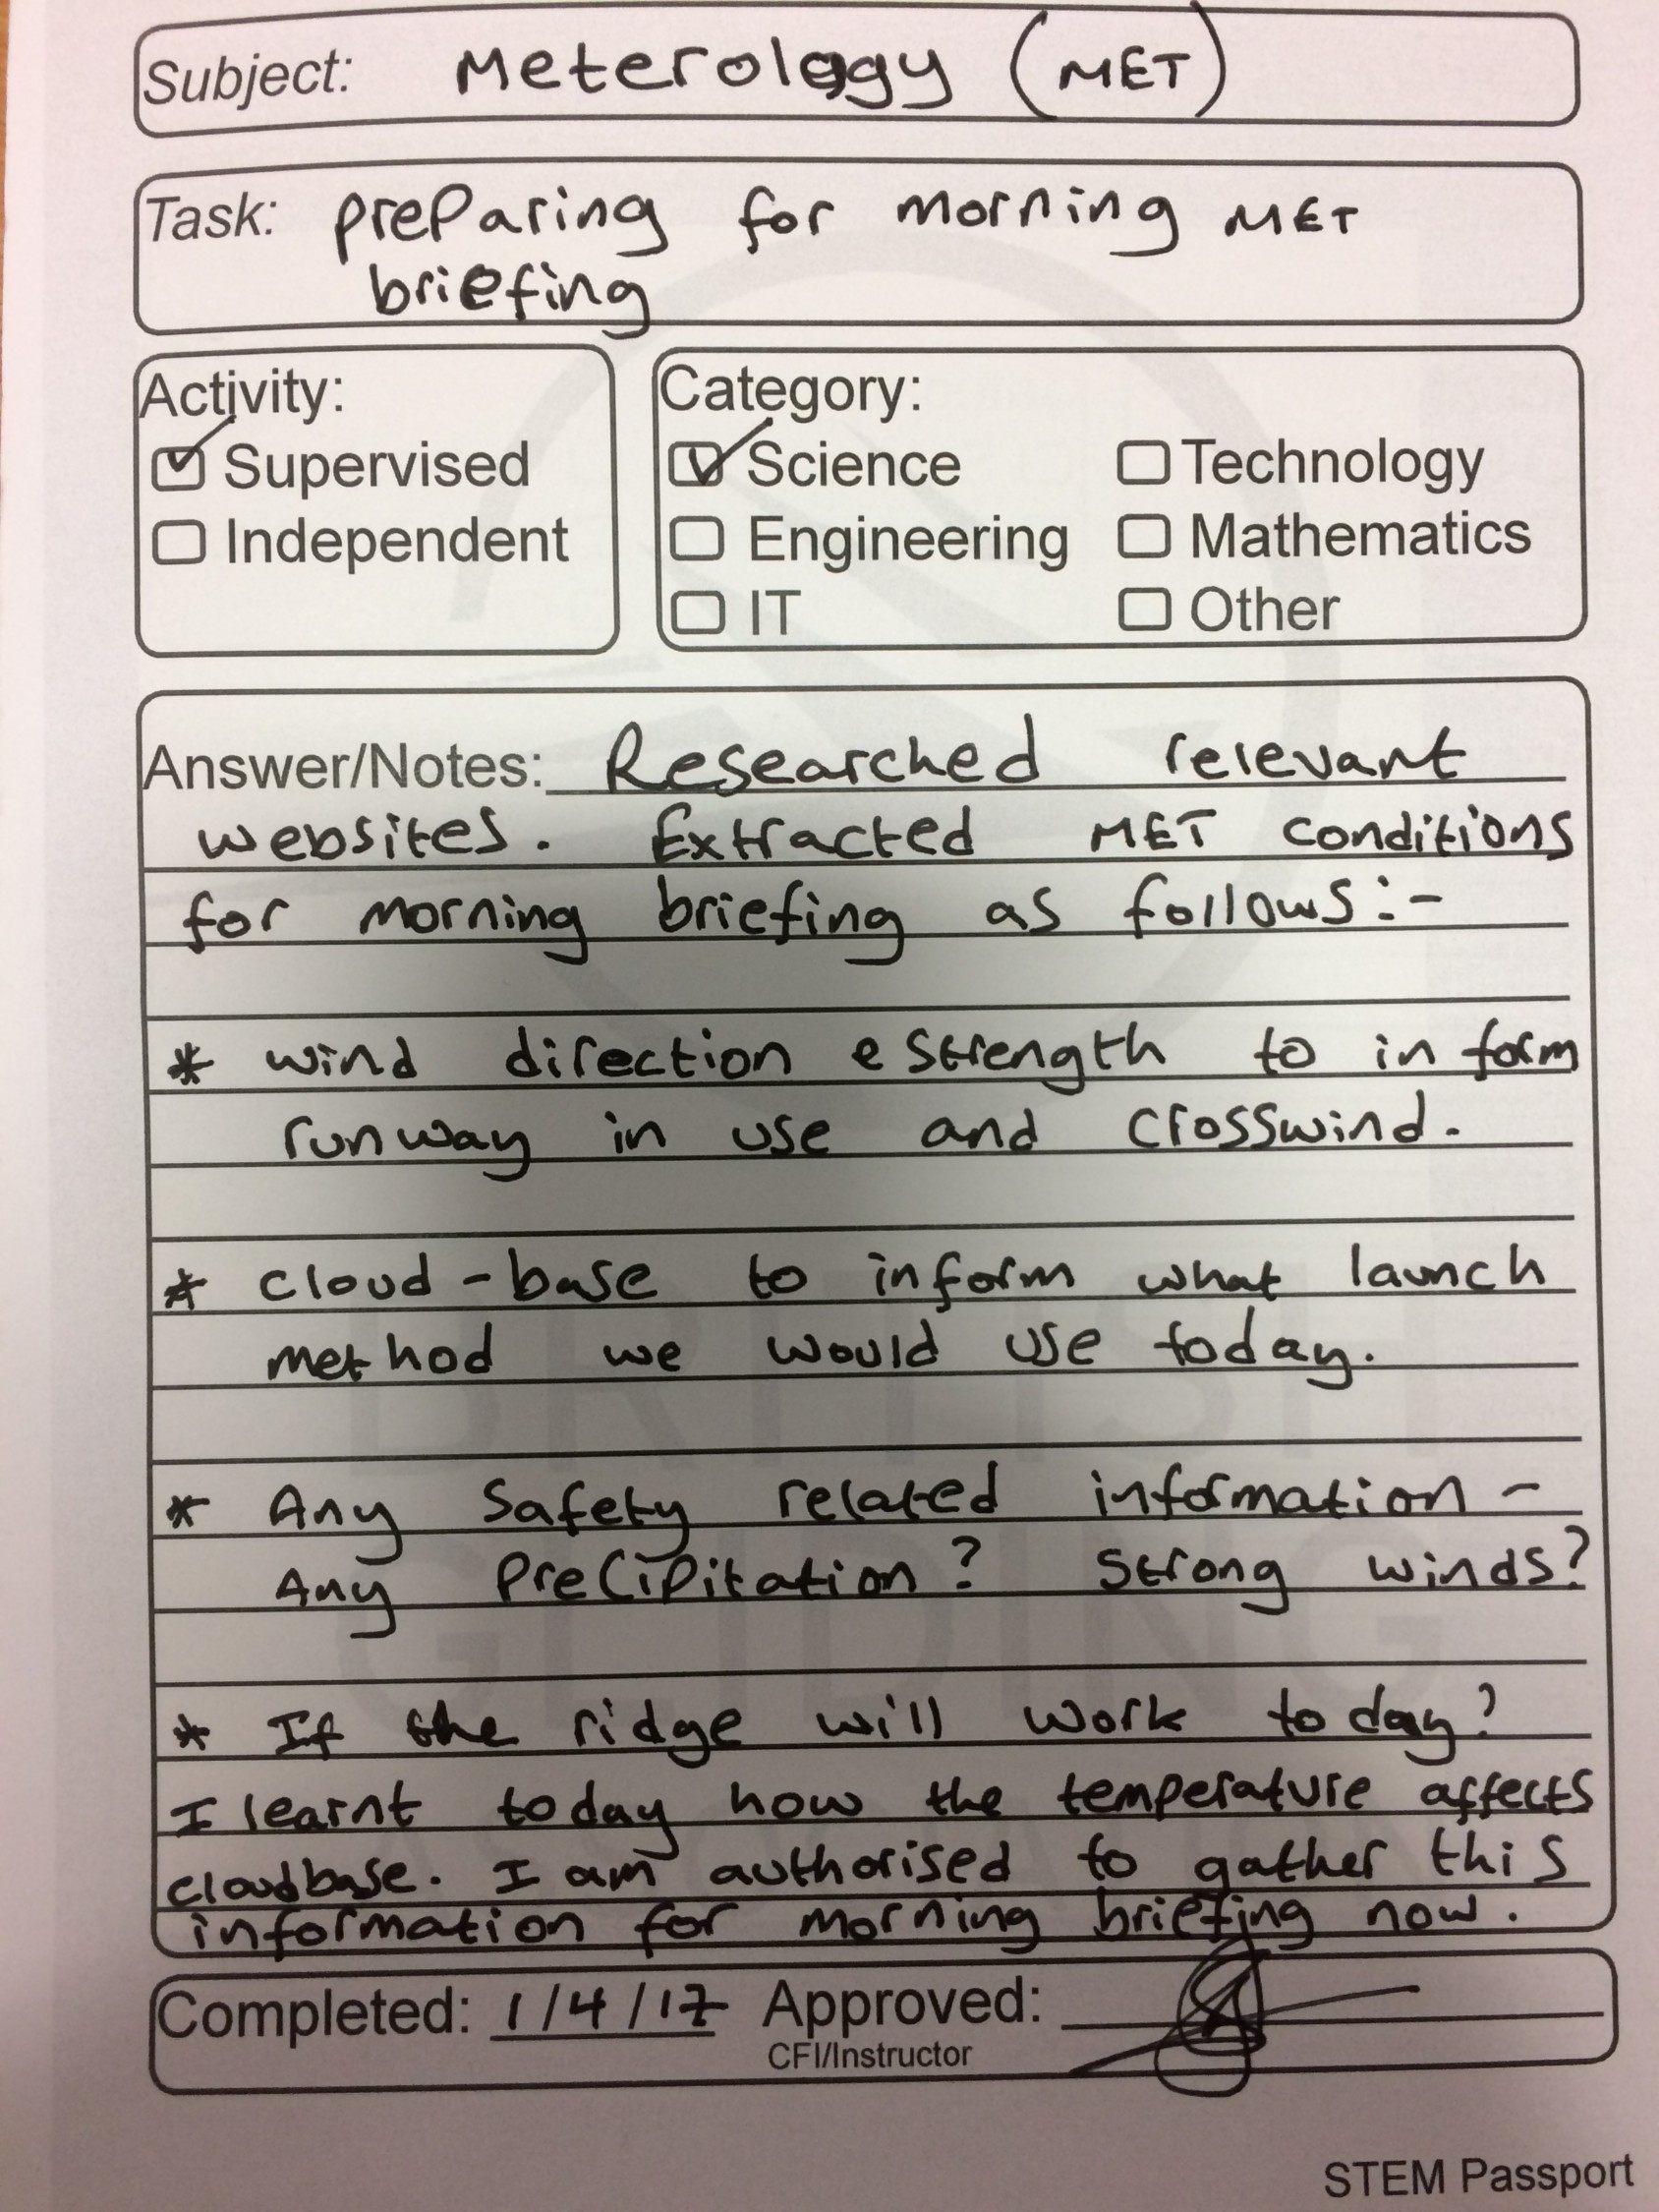 Subject: Meterology (MET)
Task: preparing for morning MET
briefing
Activity:
Supervised
Independent
Category:
Science
Technology
Engineering
Mathematics
IT
Other
Answer/Notes: Researched relevant
websites. Extracted MET conditions
for morning briefing as follows:-
* wind direction e strength to inform
runway in use and crosswind.
* cloud-base to inform what launch
method we would use today.
* Any safety related information -
Any precipitation? Strong winds?
* If the ridge will work today?
I learnt today how the temperature affects
cloudbase. I am authorised to gather this
information for morning briefing now.
Completed: 1/4/17 Approved:
CFI/Instructor
STEM Passport
BRITISH
GLIDING